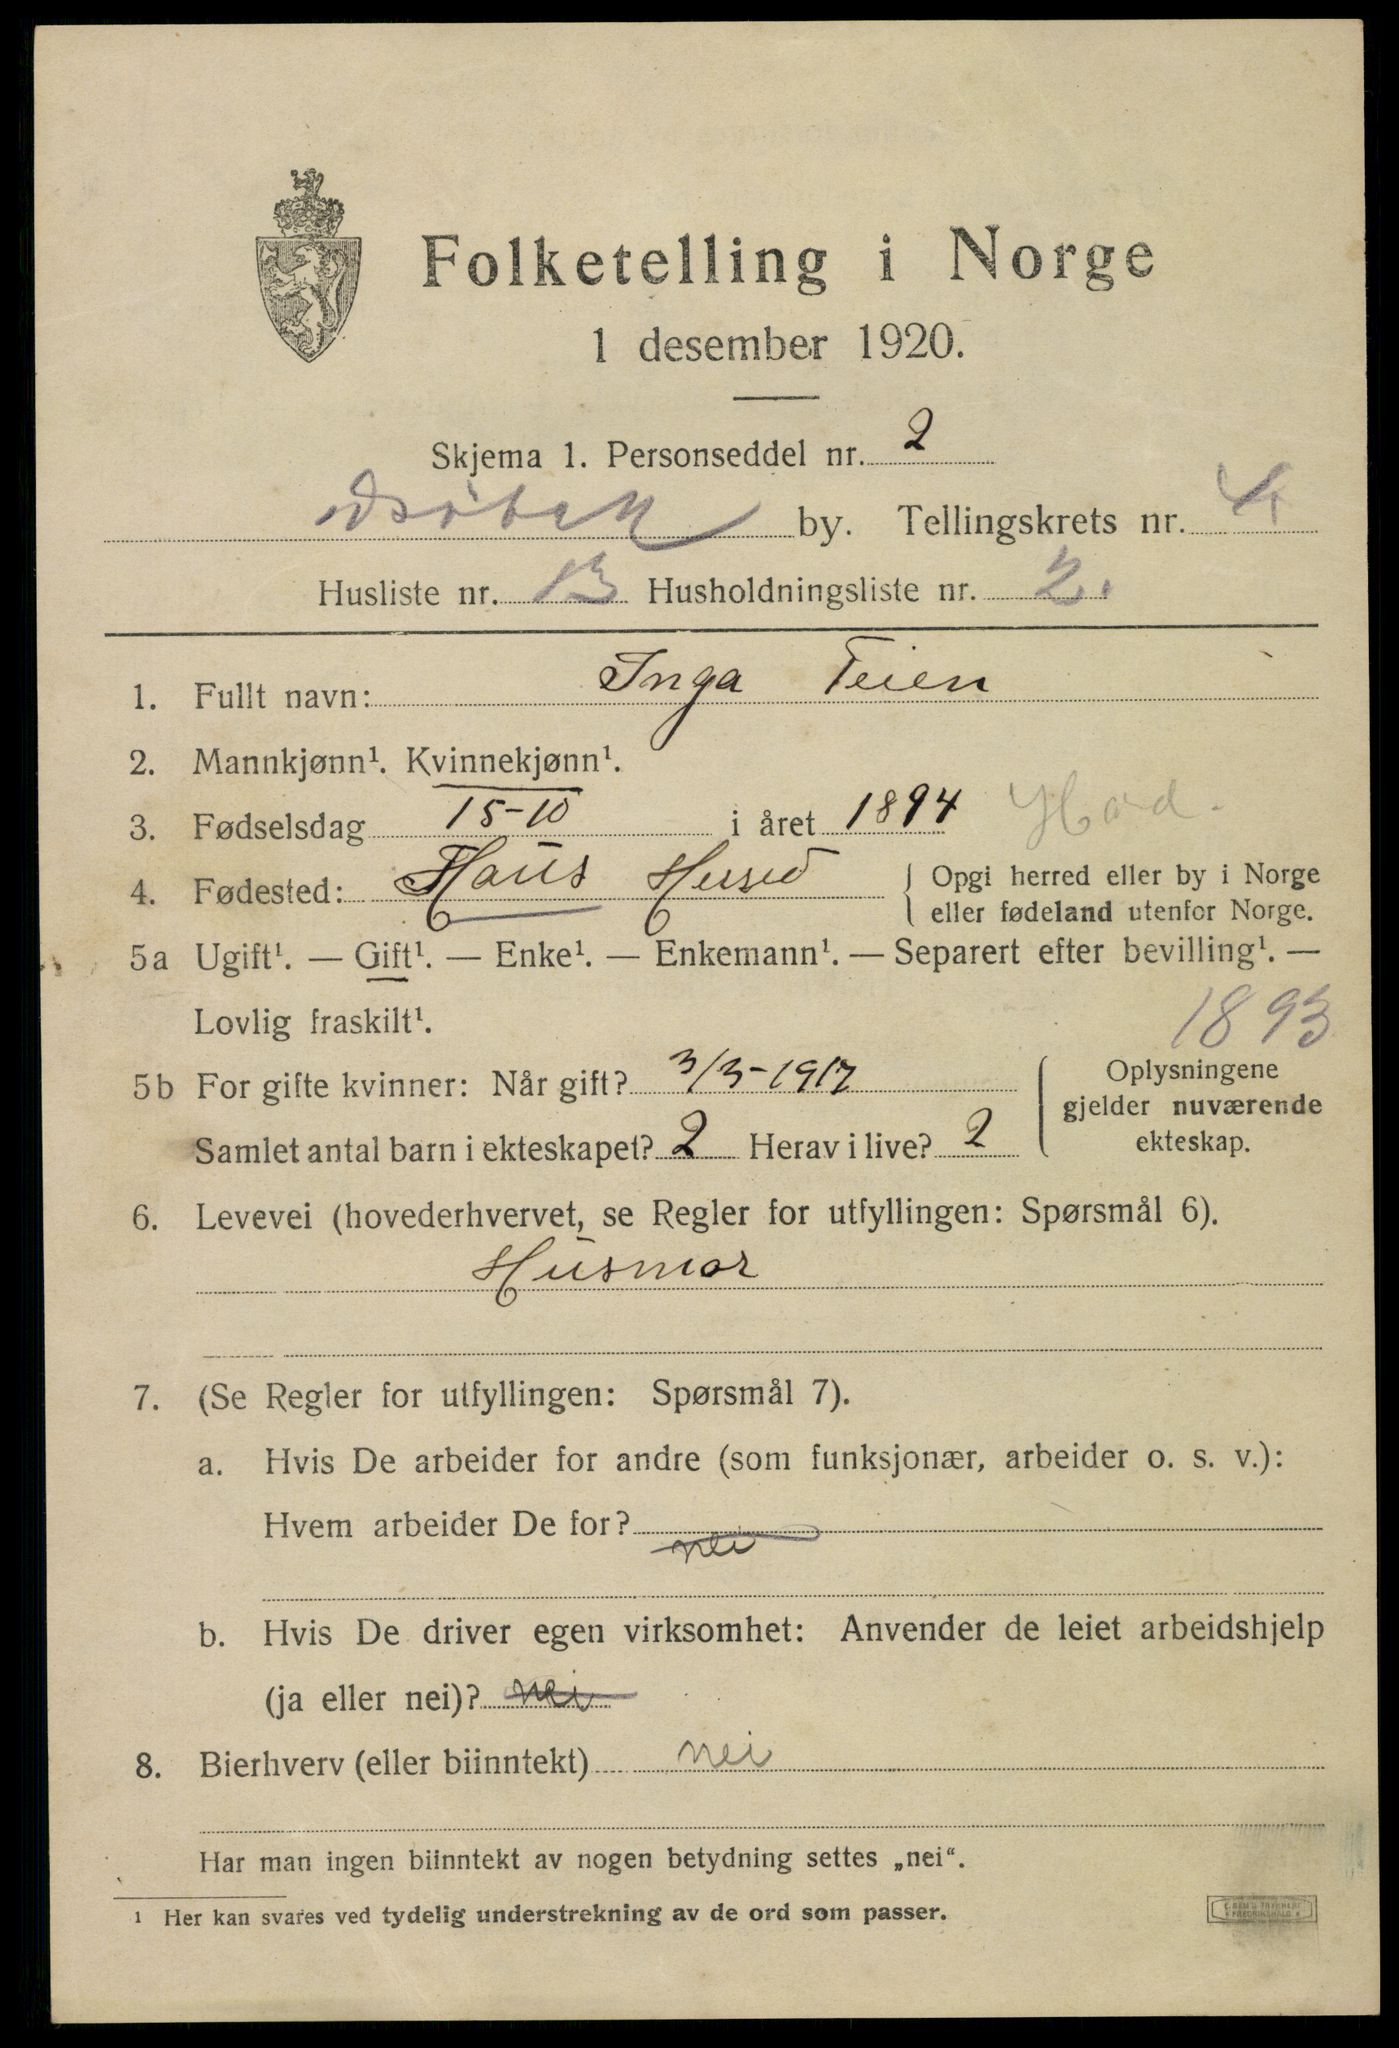 Folketelling i Norge
1 desember 1920.
Skjema 1. Personseddel nr. 2
Drøbak by. Tellingskrets nr. 4.
Husliste nr. 13 Husholdningsliste nr. 2.
1. Fullt navn: Inga Teien
2. Mannkjønn¹. Kvinnekjønn¹.
3. Fødselsdag 15-10 i året 1894 Hord.
4. Fødested: Haus Herred { Opgi herred eller by i Norge
eller fødeland utenfor Norge.
5a Ugift¹. — Gift¹. — Enke¹. — Enkemann¹. — Separert efter bevilling¹. —
Lovlig fraskilt¹.
1893
5b For gifte kvinner: Når gift? 3/3-1917
Samlet antal barn i ekteskapet? 2 Herav i live? 2
Oplysningene
gjelder nuværende
ekteskap.
6. Levevei (hovederhvervet, se Regler for utfyllingen: Spørsmål 6).
Husmor
7. (Se Regler for utfyllingen: Spørsmål 7).
a. Hvis De arbeider for andre (som funksjonær, arbeider o. s. v.):
Hvem arbeider De for? nei
b. Hvis De driver egen virksomhet: Anvender de leiet arbeidshjelp
(ja eller nei)? nei
8. Bierhverv (eller biinntekt) nei
Har man ingen biinntekt av nogen betydning settes „nei“.
¹ Her kan svares ved tydelig understrekning av de ord som passer.